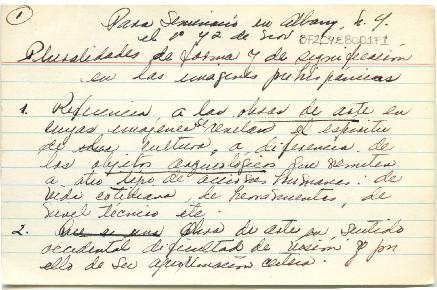 1
Para Seminario en Albany, N.Y.
el 1º y 2 de Nov
BF2C9E80D171
Pluralidades de forma y de significación
en las imágenes prehispánicas
1. Referencia a las obras de arte en
cuyas imágenes se revelan el espíritu
de su cultura, a diferencia de
los objetos arqueológicos que remiten
a otro tipo de acciones humanas: de
vida cotidiana, de herramientas, de
nivel técnico etc.
2. Obra de arte en sentido
occidental dificultad de visión y por
ello de su aproximación certera.